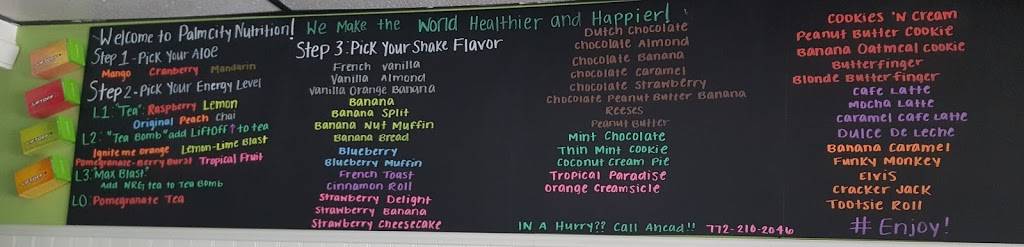 Welcome to Palmcity Nutrition! We Make the World Healthier and Happier!
Step 1-Pick Your Aloe
Mango Cranberry Mandarin
Step 2-Pick Your Energy Level
L1: "Tea": Raspberry Lemon
Original Peach Chai
L2: "Tea Bomb" add Liftoff ↑ to tea
Ignite me orange Lemon-Lime Blast
Pomegranate-Berry Burst Tropical Fruit
L3: Max Blast:
Add NRG tea to Tea Bomb
L0: Pomegranate Tea
Step 3: Pick Your Shake Flavor
French vanilla
Vanilla Almond
Vanilla Orange Banana
Banana
Banana Split
Banana Nut Muffin
Banana Bread
Blueberry
Blueberry Muffin
French Toast
Cinnamon Roll
Strawberry Delight
Strawberry Banana
Strawberry Cheesecake
Dutch Chocolate
chocolate Almond
Chocolate Banana
chocolate caramel
Chocolate Strawberry
Chocolate Peanut Butter Banana
Reeses
Peanut Butter
Mint Chocolate
Thin Mint Cookie
Coconut Cream Pie
Tropical Paradise
Orange Creamsicle
Cookies 'N Cream
Peanut Butter Cookie
Banana Oatmeal Cookie
Butterfinger
Blonde Butterfinger
Cafe Latte
Mocha Latte
Caramel Cafe Latte
Dulce De Leche
Banana Caramel
Funky Monkey
Elvis
Cracker Jack
Tootsie Roll
IN A Hurry?? Call Ahead!! 772-210-2046
# Enjoy!
LIFTOFF
LIFTOFF